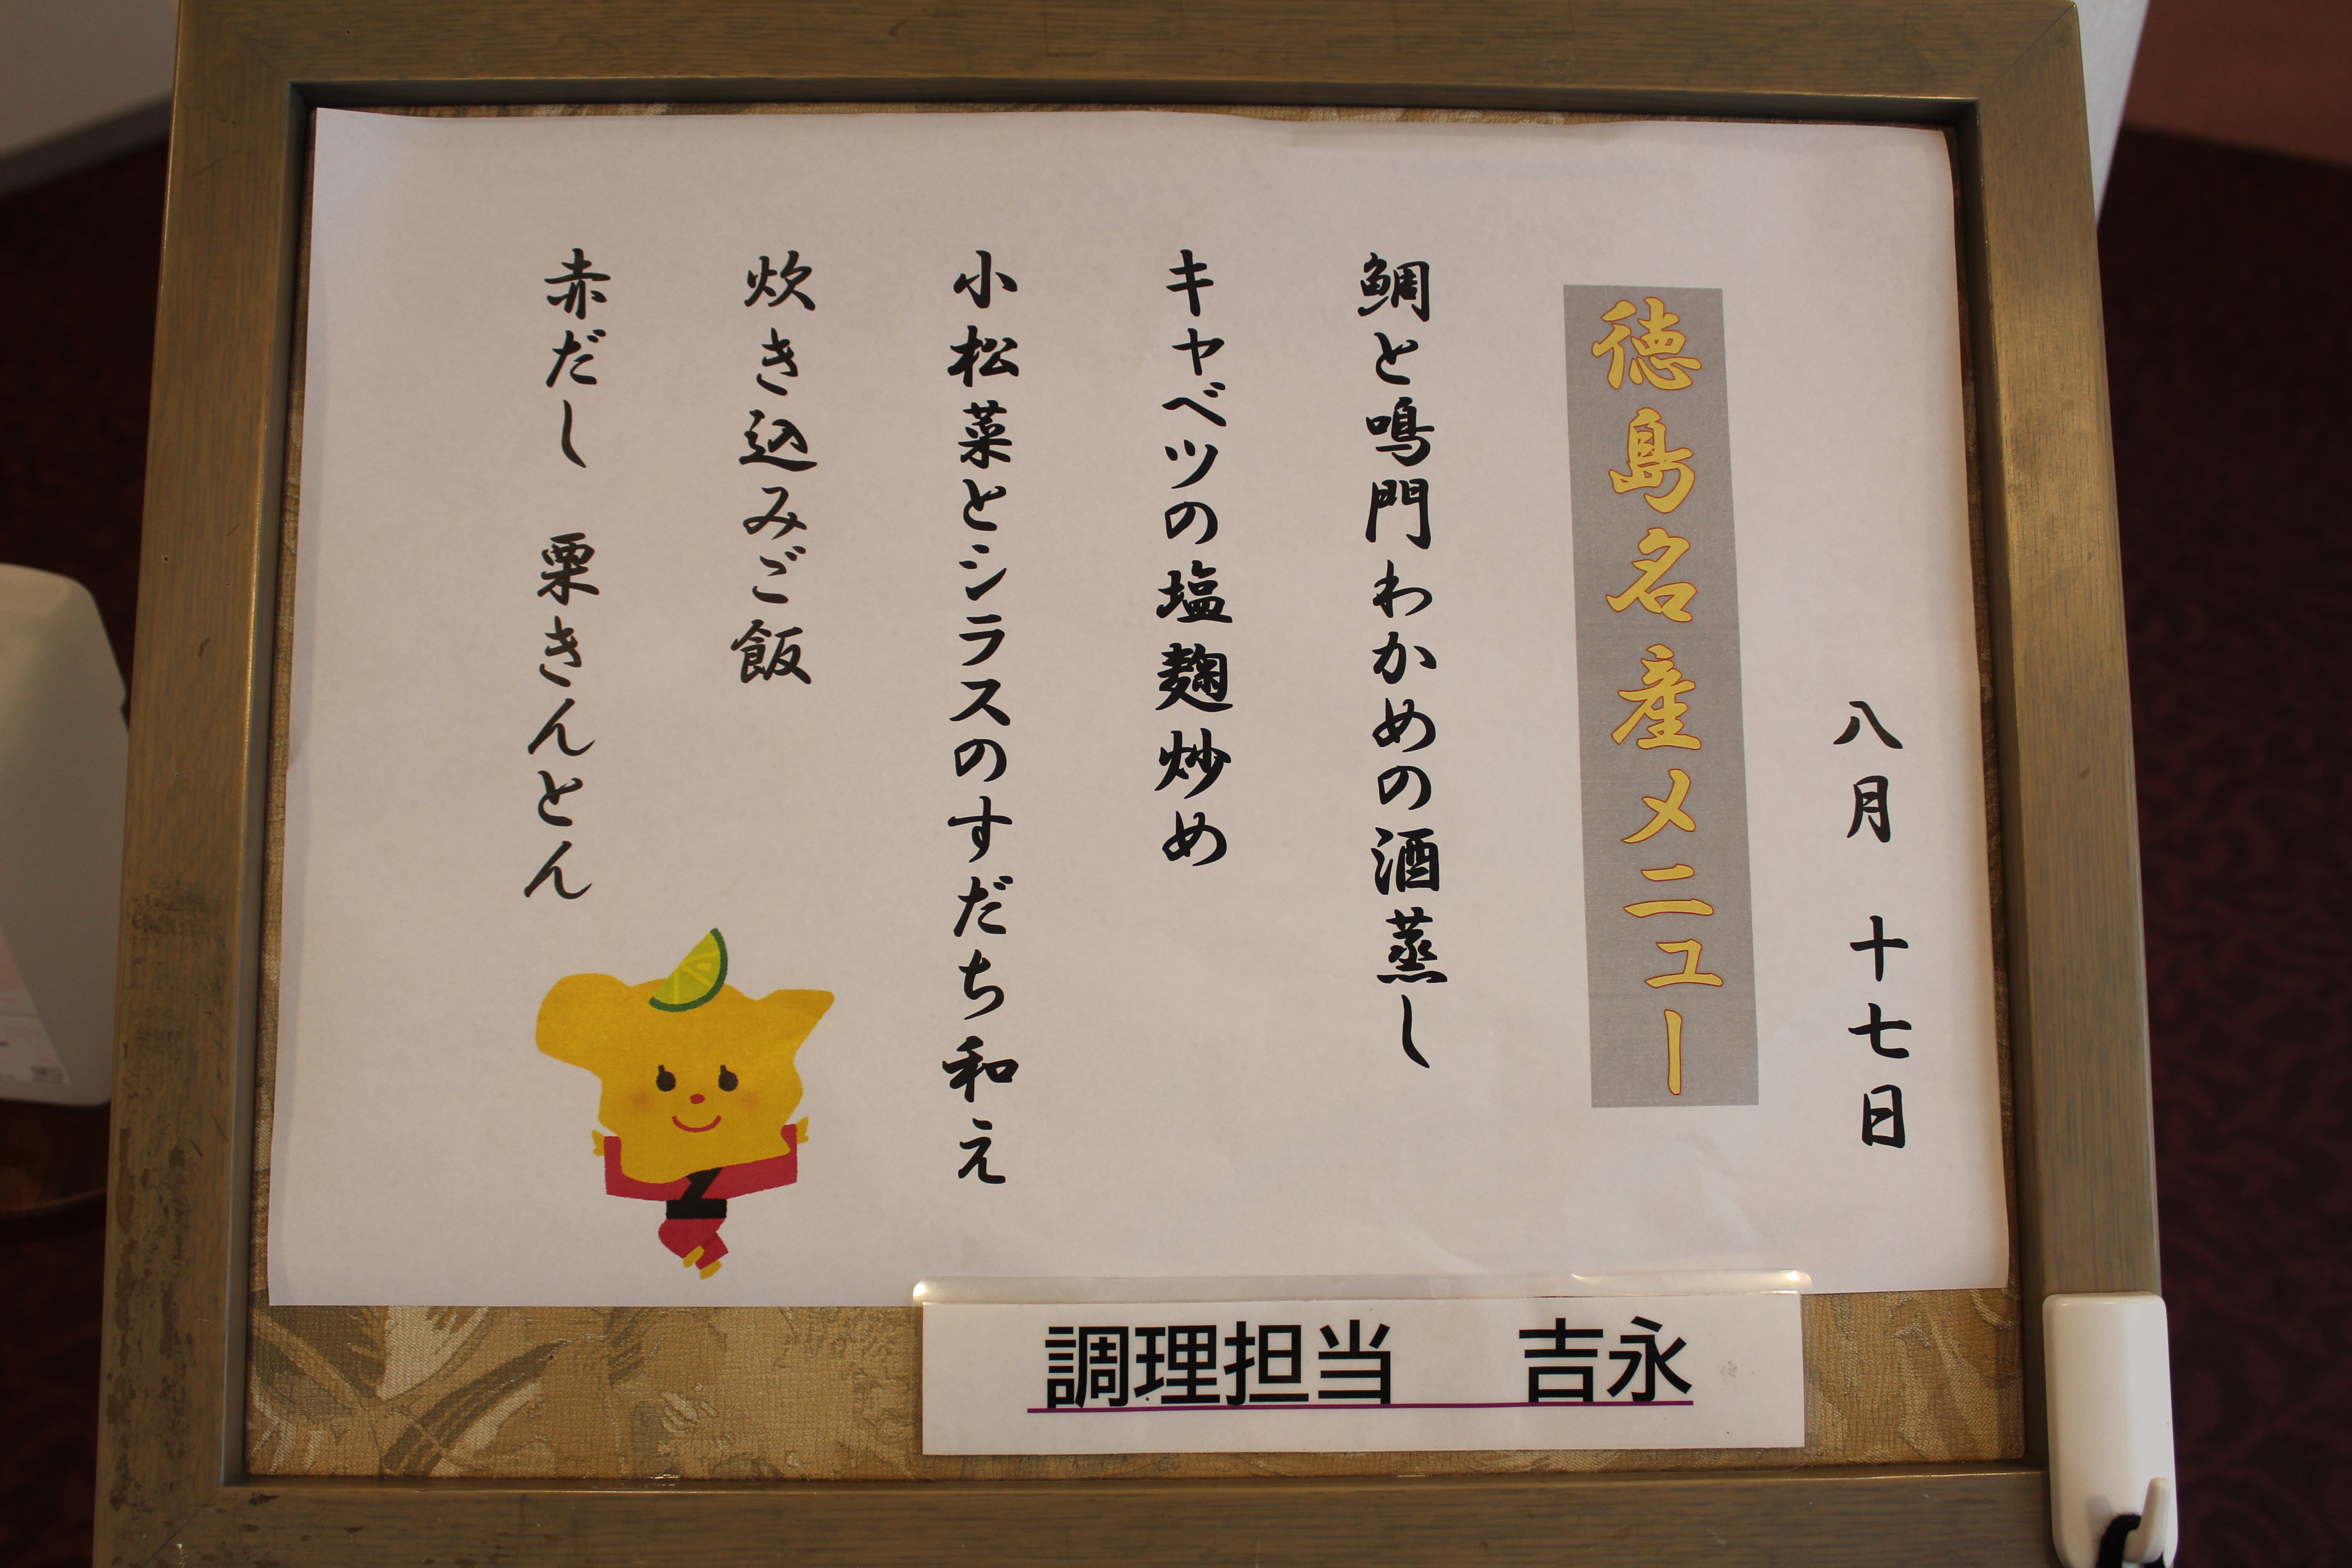 八月 十七日
徳島名産メニュー
鯛と鳴門わかめの酒蒸し
キャベツの塩麹炒め
小松菜とシラスのすだち和え
炊き込みご飯
赤だし 栗きんとん
調理担当 吉永